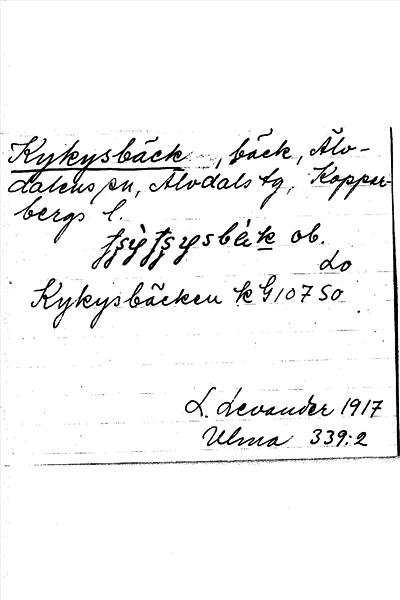 Kykysbäck, bäck, Älv-
dalens sn, Älvdals tg, Koppar-
bergs l.
ob.
Lo
Kykysbäcken k G 107 So
L. Levander 1917
Ulma 339:2